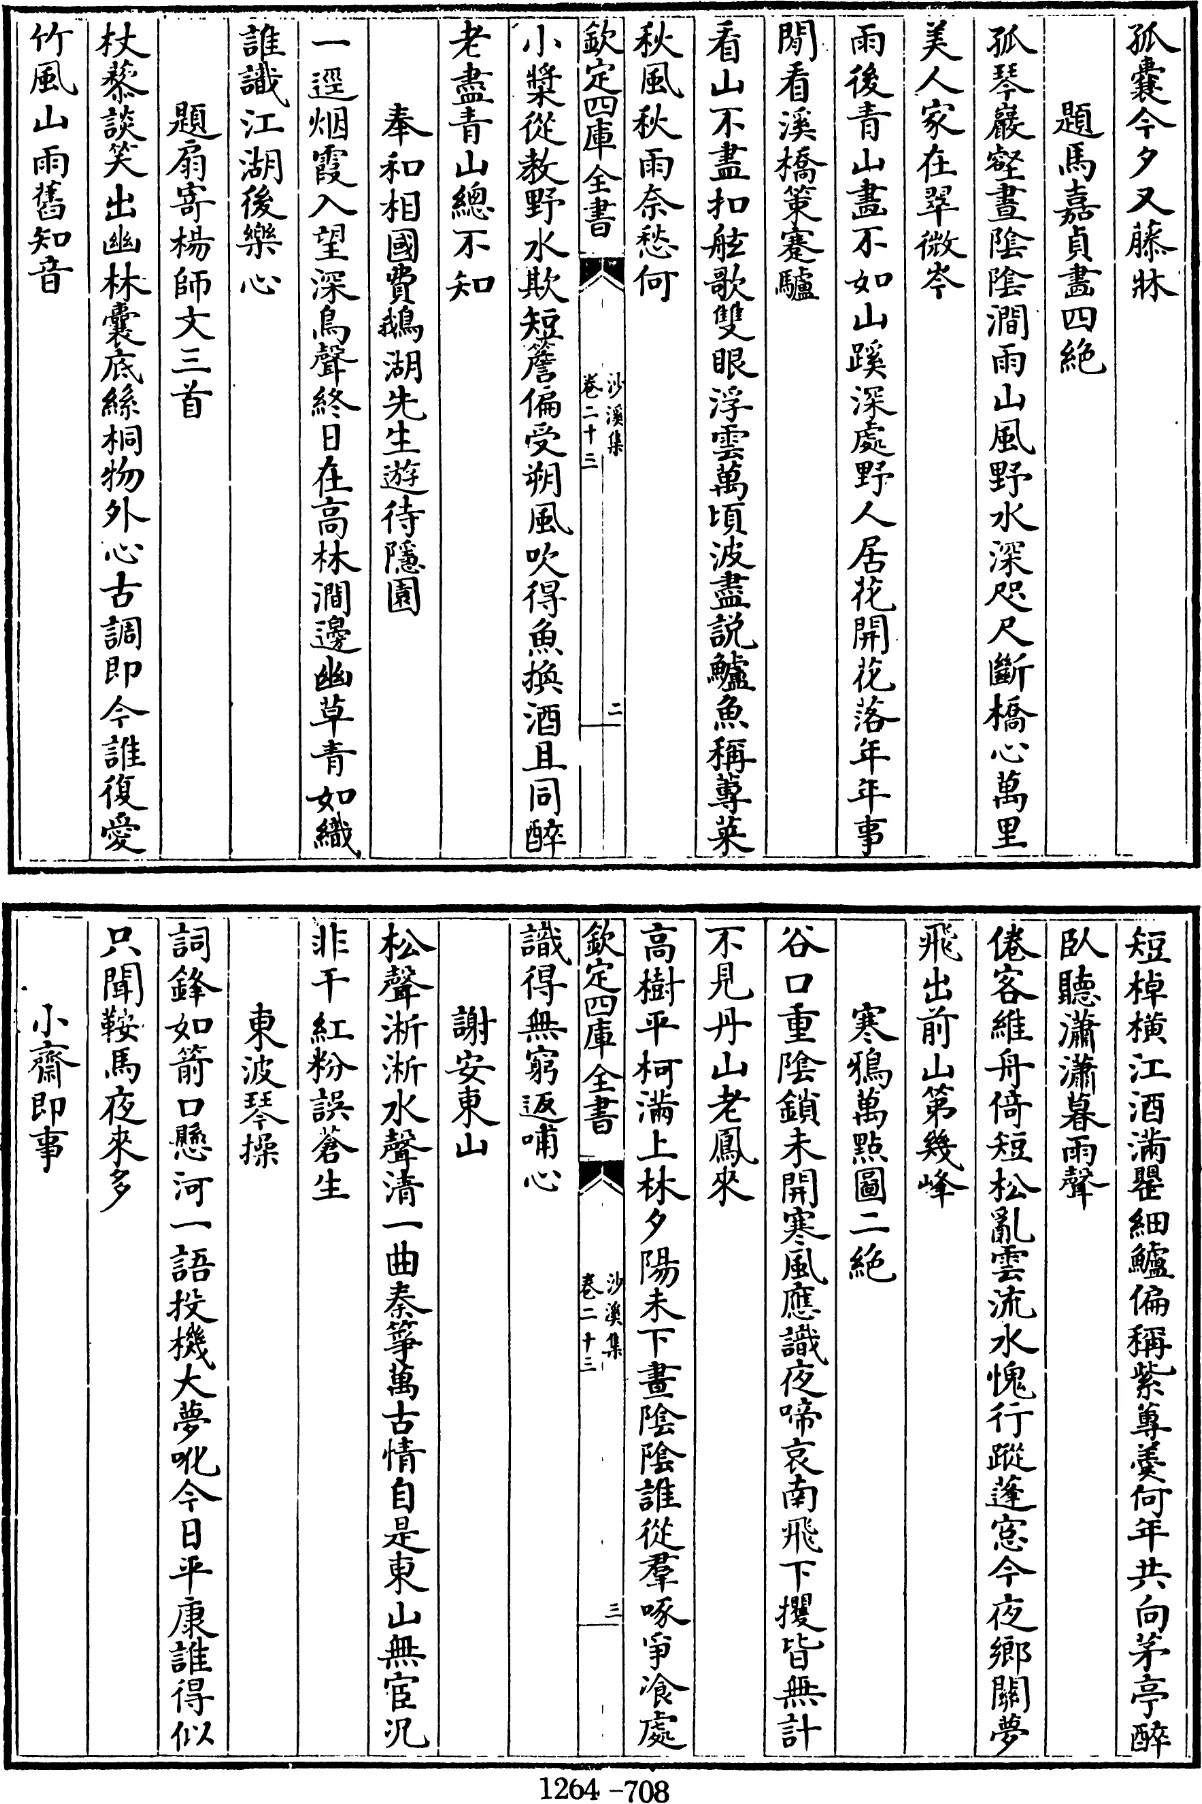 孤囊今夕又藤牀
題馬嘉貞畵四絶
孤琴巖壑晝陰陰澗雨山風野水深咫尺斷橋心萬里
美人家在翠微岑
雨後青山畵不如山蹊深處野人居花開花落年年事
閒看溪橋策蹇驢
看山不盡扣舷歌雙眼浮雲萬頃波盡説鱸魚稱蓴菜
秋風秋雨奈愁何
欽定四庫全書
沙溪集
卷二十三
二
小槳從教野水欺短簷偏受朔風吹得魚換酒且同醉
老盡青山總不知
奉和相國費鵝湖先生遊待隱園
一逕烟霞入望深鳥聲終日在高林澗邊幽草青如織
誰識江湖後樂心
題扇寄楊師文三首
杖藜談笑出幽林囊底絲桐物外心古調即今誰復愛
竹風山雨舊知音
短棹橫江酒滿罌細鱸偏稱紫蓴羮何年共向茅亭醉
臥聽瀟瀟暮雨聲
倦客維舟倚短松亂雲流水愧行蹤蓬窓今夜鄉關夢
飛出前山第幾峰
寒鴉萬點圖二絶
谷口重陰鎖未開寒風應識夜啼哀南飛下攫皆無計
不見丹山老鳳來
高樹平柯滿上林夕陽未下晝陰陰誰從羣啄爭飡處
欽定四庫全書
沙溪集
卷二十三
三
識得無窮返哺心
謝安東山
松聲淅淅水聲清一曲秦箏萬古情自是東山無宦況
非干紅粉誤蒼生
東波琴操
詞鋒如箭口懸河一語投機大夢吪今日平康誰得似
只聞鞍馬夜來多
小齋即事
1264-708